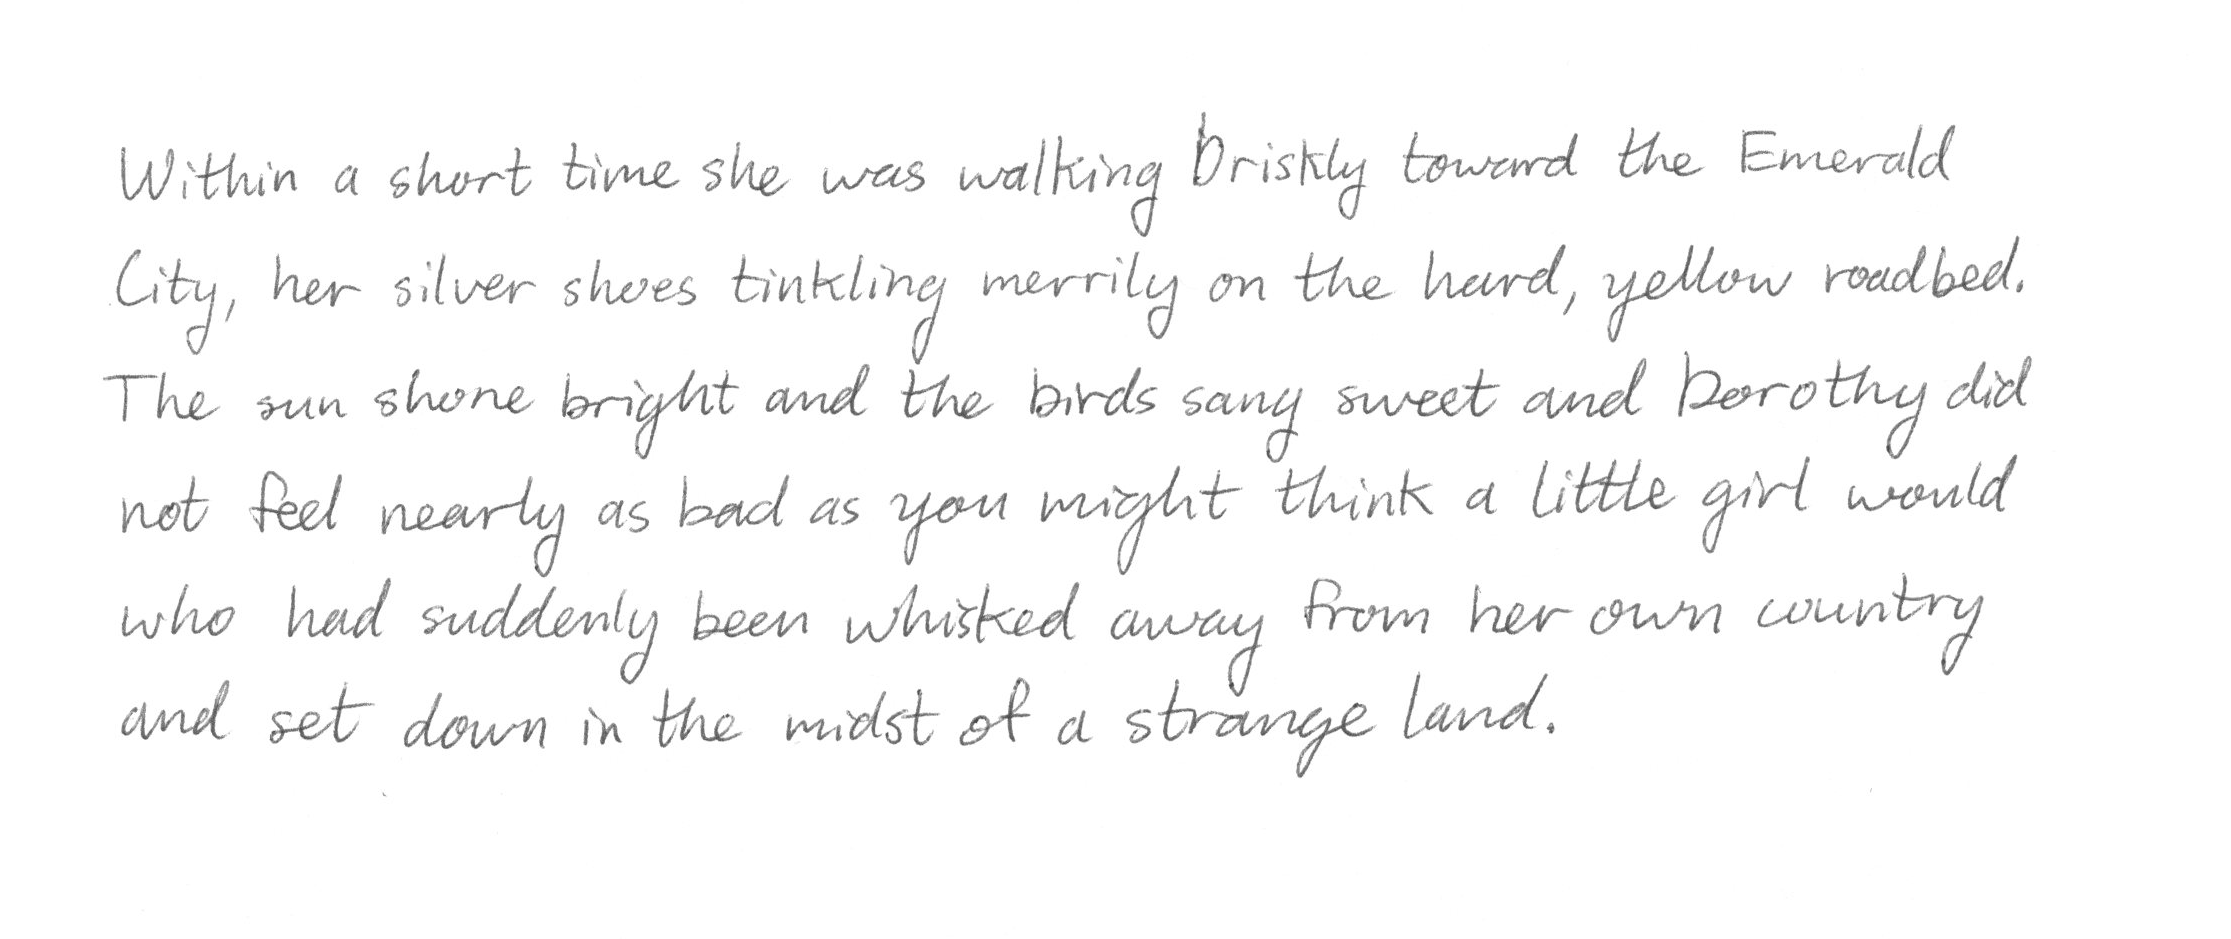 Within a short time she was walking briskly toward the Emerald
City, her silver shoes tinkling merrily on the hard, yellow roadbed.
The sun shone bright and the birds sang sweet and Dorothy did
not feel nearly as bad as you might think a little girl would
who had suddenly been whisked away from her own country
and set down in the midst of a strange land.